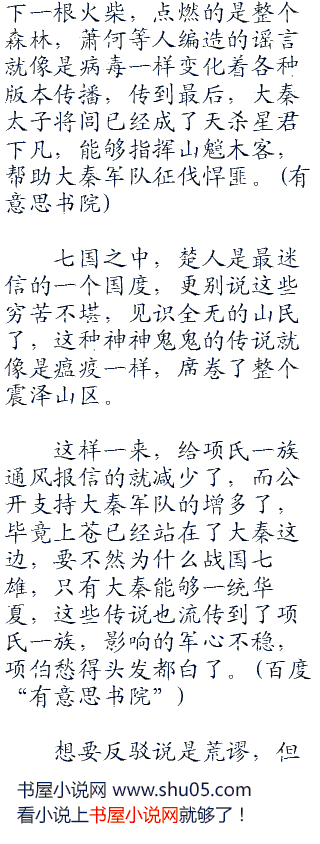 下一根火柴，点燃的是整个
森林，萧何等人编造的谣言
就像是病毒一样变化着各种
版本传播，传到最后，大秦
太子将闾已经成了天杀星君
下凡，能够指挥山魈木客，
帮助大秦军队征伐悍匪。(有
意思书院)
七国之中，楚人是最迷
信的一个国度，更别说这些
穷苦不堪，见识全无的山民
了，这种神神鬼鬼的传说就
像是瘟疫一样，席卷了整个
震泽山区。
这样一来，给项氏一族
通风报信的就减少了，而公
开支持大秦军队的增多了，
毕竟上苍已经站在了大秦这
边，要不然为什么战国七
雄，只有大秦能够一统华
夏，这些传说也流传到了项
氏一族，影响的军心不稳，
项伯愁得头发都白了。(百度
“有意思书院”)
想要反驳说是荒谬，但
书屋小说网 www.shu05.com
看小说上书屋小说网就够了！